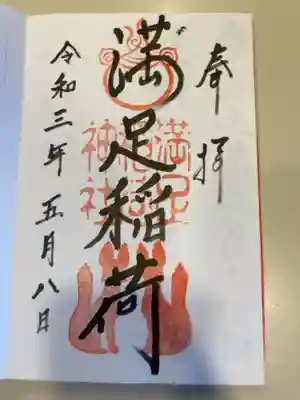 奉拝
満足稲荷
満足
稲荷
神社
令和三年 五月八日